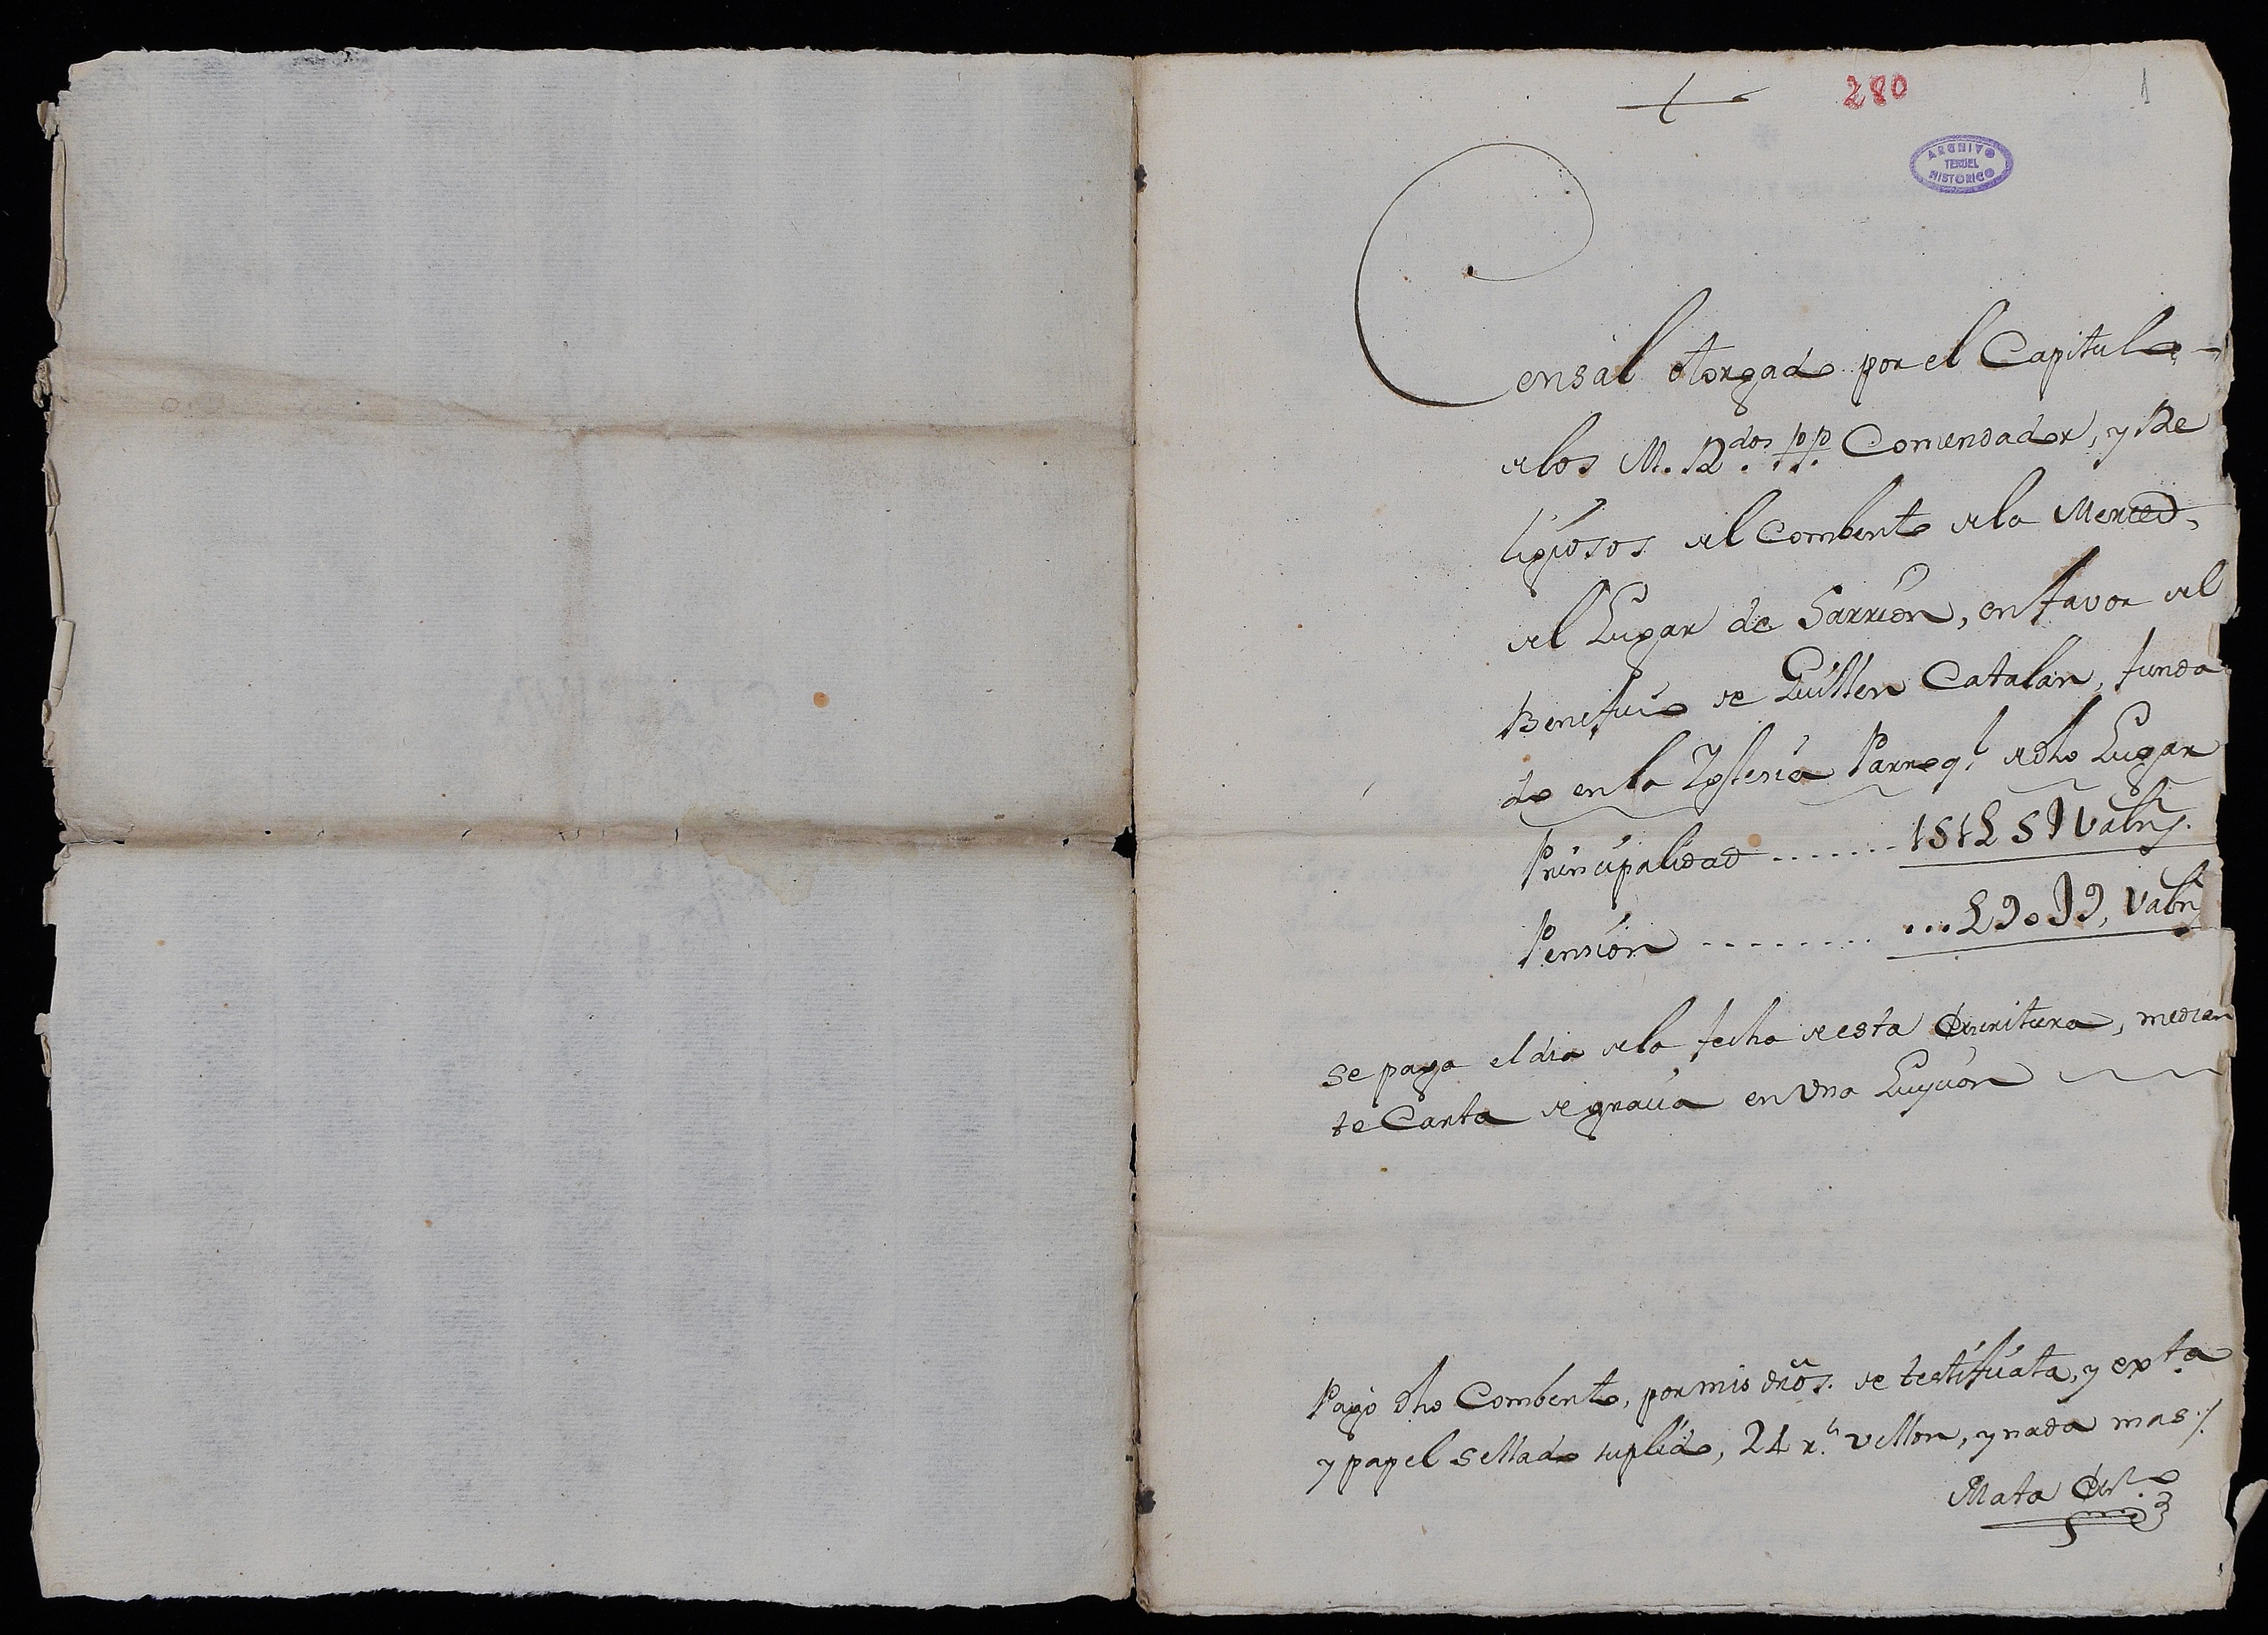 280 1
ARCHIVO
TERUEL
HISTORICO
Censàl otorgado por el Capitulo
de los M. Rdos. PP. Comendador, y Re
ligiosos del Combento de la Merced,
del Lugar de Sarrion, en favor del
Beneficio de Guillen Catalan, funda
do en la Iglesia Parroql. de dho Lugar
Principalidad ....... 151 L 5 S Valens.
Pension ........ ... Valens
se paga el dia de la fecha de esta Escritura, median
te Carta de gracia en Una Luycion
Pagò dho Combento, por mis dros. de testificata, y extta.
y papel sellado suplido, 24 rs. vellon, y nada mas ./.
Mata Essno.